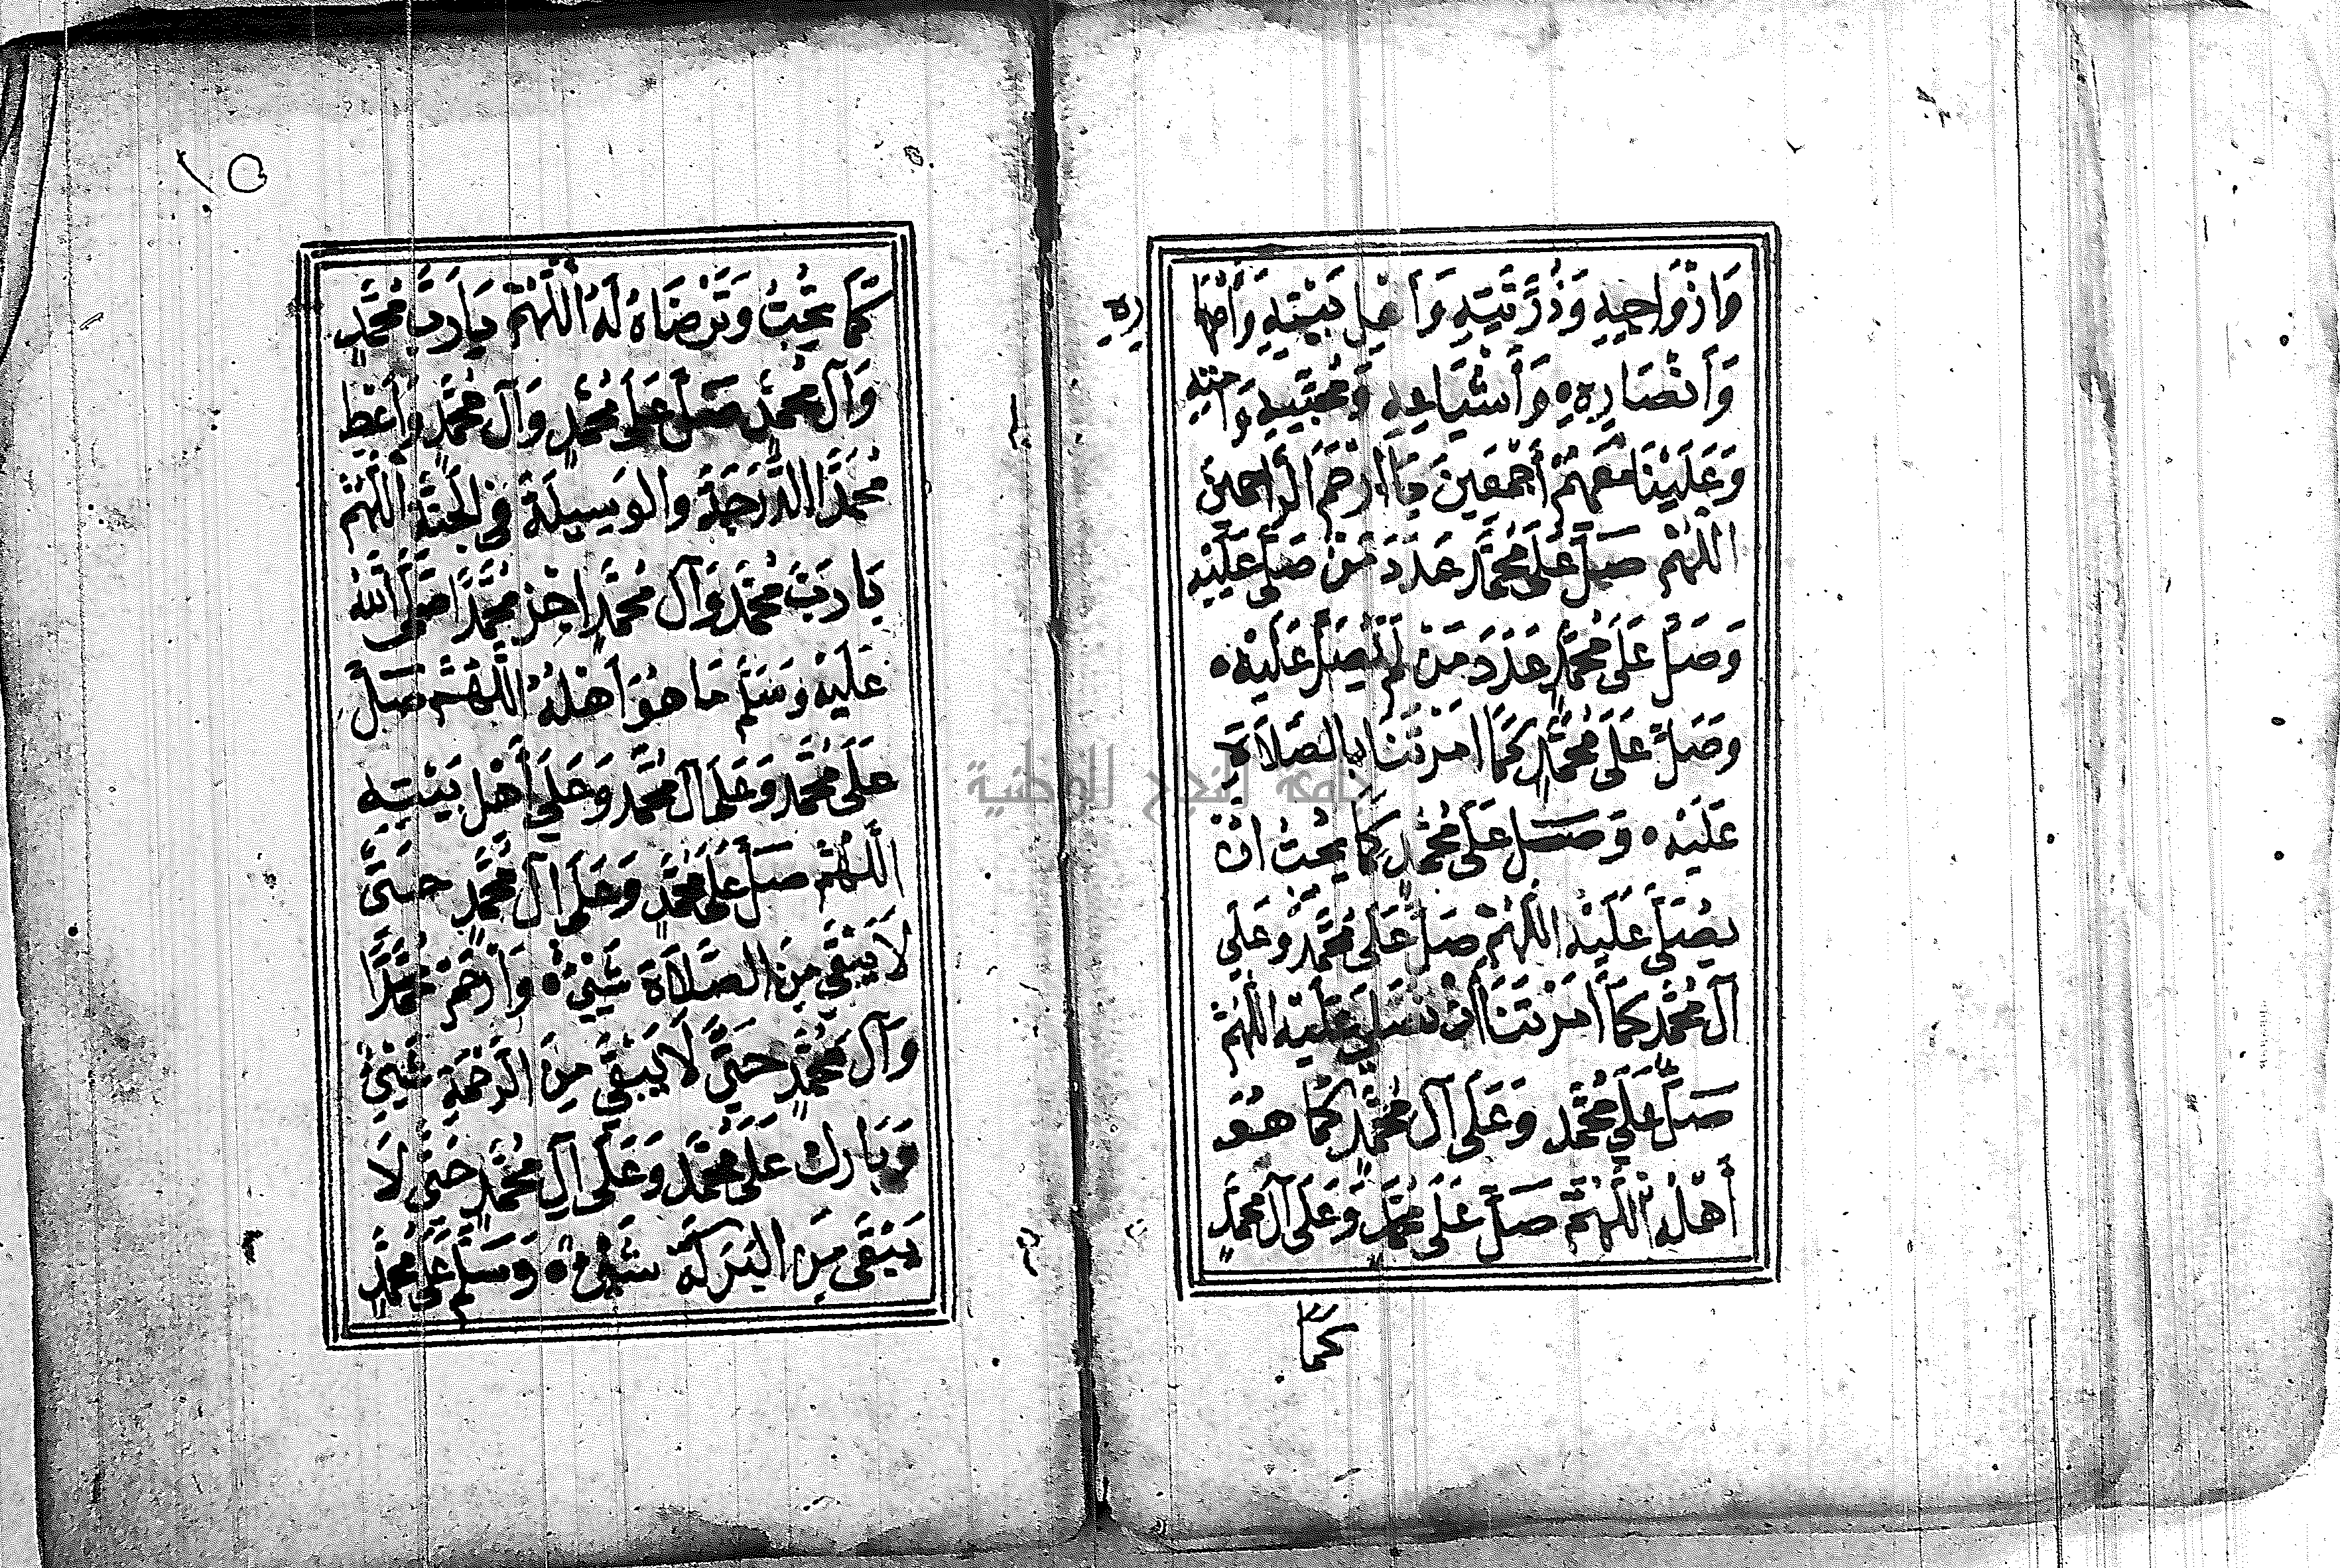 وَازْوَاجِهِ وَذُرِّيَّتِهِ وَأَهْلِ بَيْتِهِ وَأَصْهَا
رِهِ
وَأَنْصَارِهِ وَأَشْيَاعِهِ وَمُحِبِّيهِ وَأُمَّتِهِ
وَعَلَيْنَا مَعَهُمْ أَجْمَعِينَ يَا أَرْحَمَ الرَّاحِمِينَ
اللَّهُمَّ صَلِّ عَلَى مُحَمَّدٍ عَدَدَ مَنْ صَلَّى عَلَيْهِ
وَصَلِّ عَلَى مُحَمَّدٍ عَدَدَ مَنْ لَمْ يُصَلِّ عَلَيْهِ
وَصَلِّ عَلَى مُحَمَّدٍ كَمَا امَرْتَنَا بِالصَّلَاةِ
عَلَيْهِ وَصَلِّ عَلَى مُحَمَّدٍ كَمَا يُحِبُّ انْ
يُصَلَّى عَلَيْهِ اللَّهُمَّ صَلِّ عَلَى مُحَمَّدٍ وَعَلَى
آلِ مُحَمَّدٍ كَمَا امَرْتَنَا أَنْ نُصَلِّيَ عَلَيْهِ اللَّهُمَّ
صَلِّ عَلَى مُحَمَّدٍ وَعَلَى آلِ مُحَمَّدٍ كَمَا هُوَ
أَهْلُهُ اللَّهُمَّ صَلِّ عَلَى مُحَمَّدٍ وَعَلَى آلِ مُحَمَّدٍ
كَمَا
١٥
كَمَا تُحِبُّ وَتَرْضَاهُ لَهُ اللَّهُمَّ يَا رَبَّ مُحَمَّدٍ
وَآلِ مُحَمَّدٍ صَلِّ عَلَى مُحَمَّدٍ وَآلِ مُحَمَّدٍ وَأَعْطِ
مُحَمَّدًا الدَّرَجَةَ وَالْوَسِيلَةَ فِي الْجَنَّةِ اللَّهُمَّ
يَا رَبَّ مُحَمَّدٍ وَآلِ مُحَمَّدٍ اجْزِ مُحَمَّدًا صَلَّى اللَّهُ
عَلَيْهِ وَسَلَّمَ مَا هُوَ أَهْلُهُ اللَّهُمَّ صَلِّ
عَلَى مُحَمَّدٍ وَعَلَى آلِ مُحَمَّدٍ وَعَلَى أَهْلِ بَيْتِهِ
اللَّهُمَّ صَلِّ عَلَى مُحَمَّدٍ وَعَلَى آلِ مُحَمَّدٍ حَتَّى
لَا يَبْقَى مِنَ الصَّلَاةِ شَيْءٌ وَارْحَمْ مُحَمَّدًا
وَآلَ مُحَمَّدٍ حَتَّى لَا يَبْقَى مِنَ الرَّحْمَةِ شَيْءٌ
وَبَارِكْ عَلَى مُحَمَّدٍ وَعَلَى آلِ مُحَمَّدٍ حَتَّى لَا
يَبْقَى مِنَ الْبَرَكَةِ شَيْءٌ وَسَلِّمْ عَلَى مُحَمَّدٍ
جامعة النجاح الوطنية